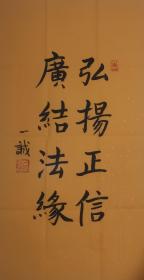 弘揚正信
廣結法緣
一誠